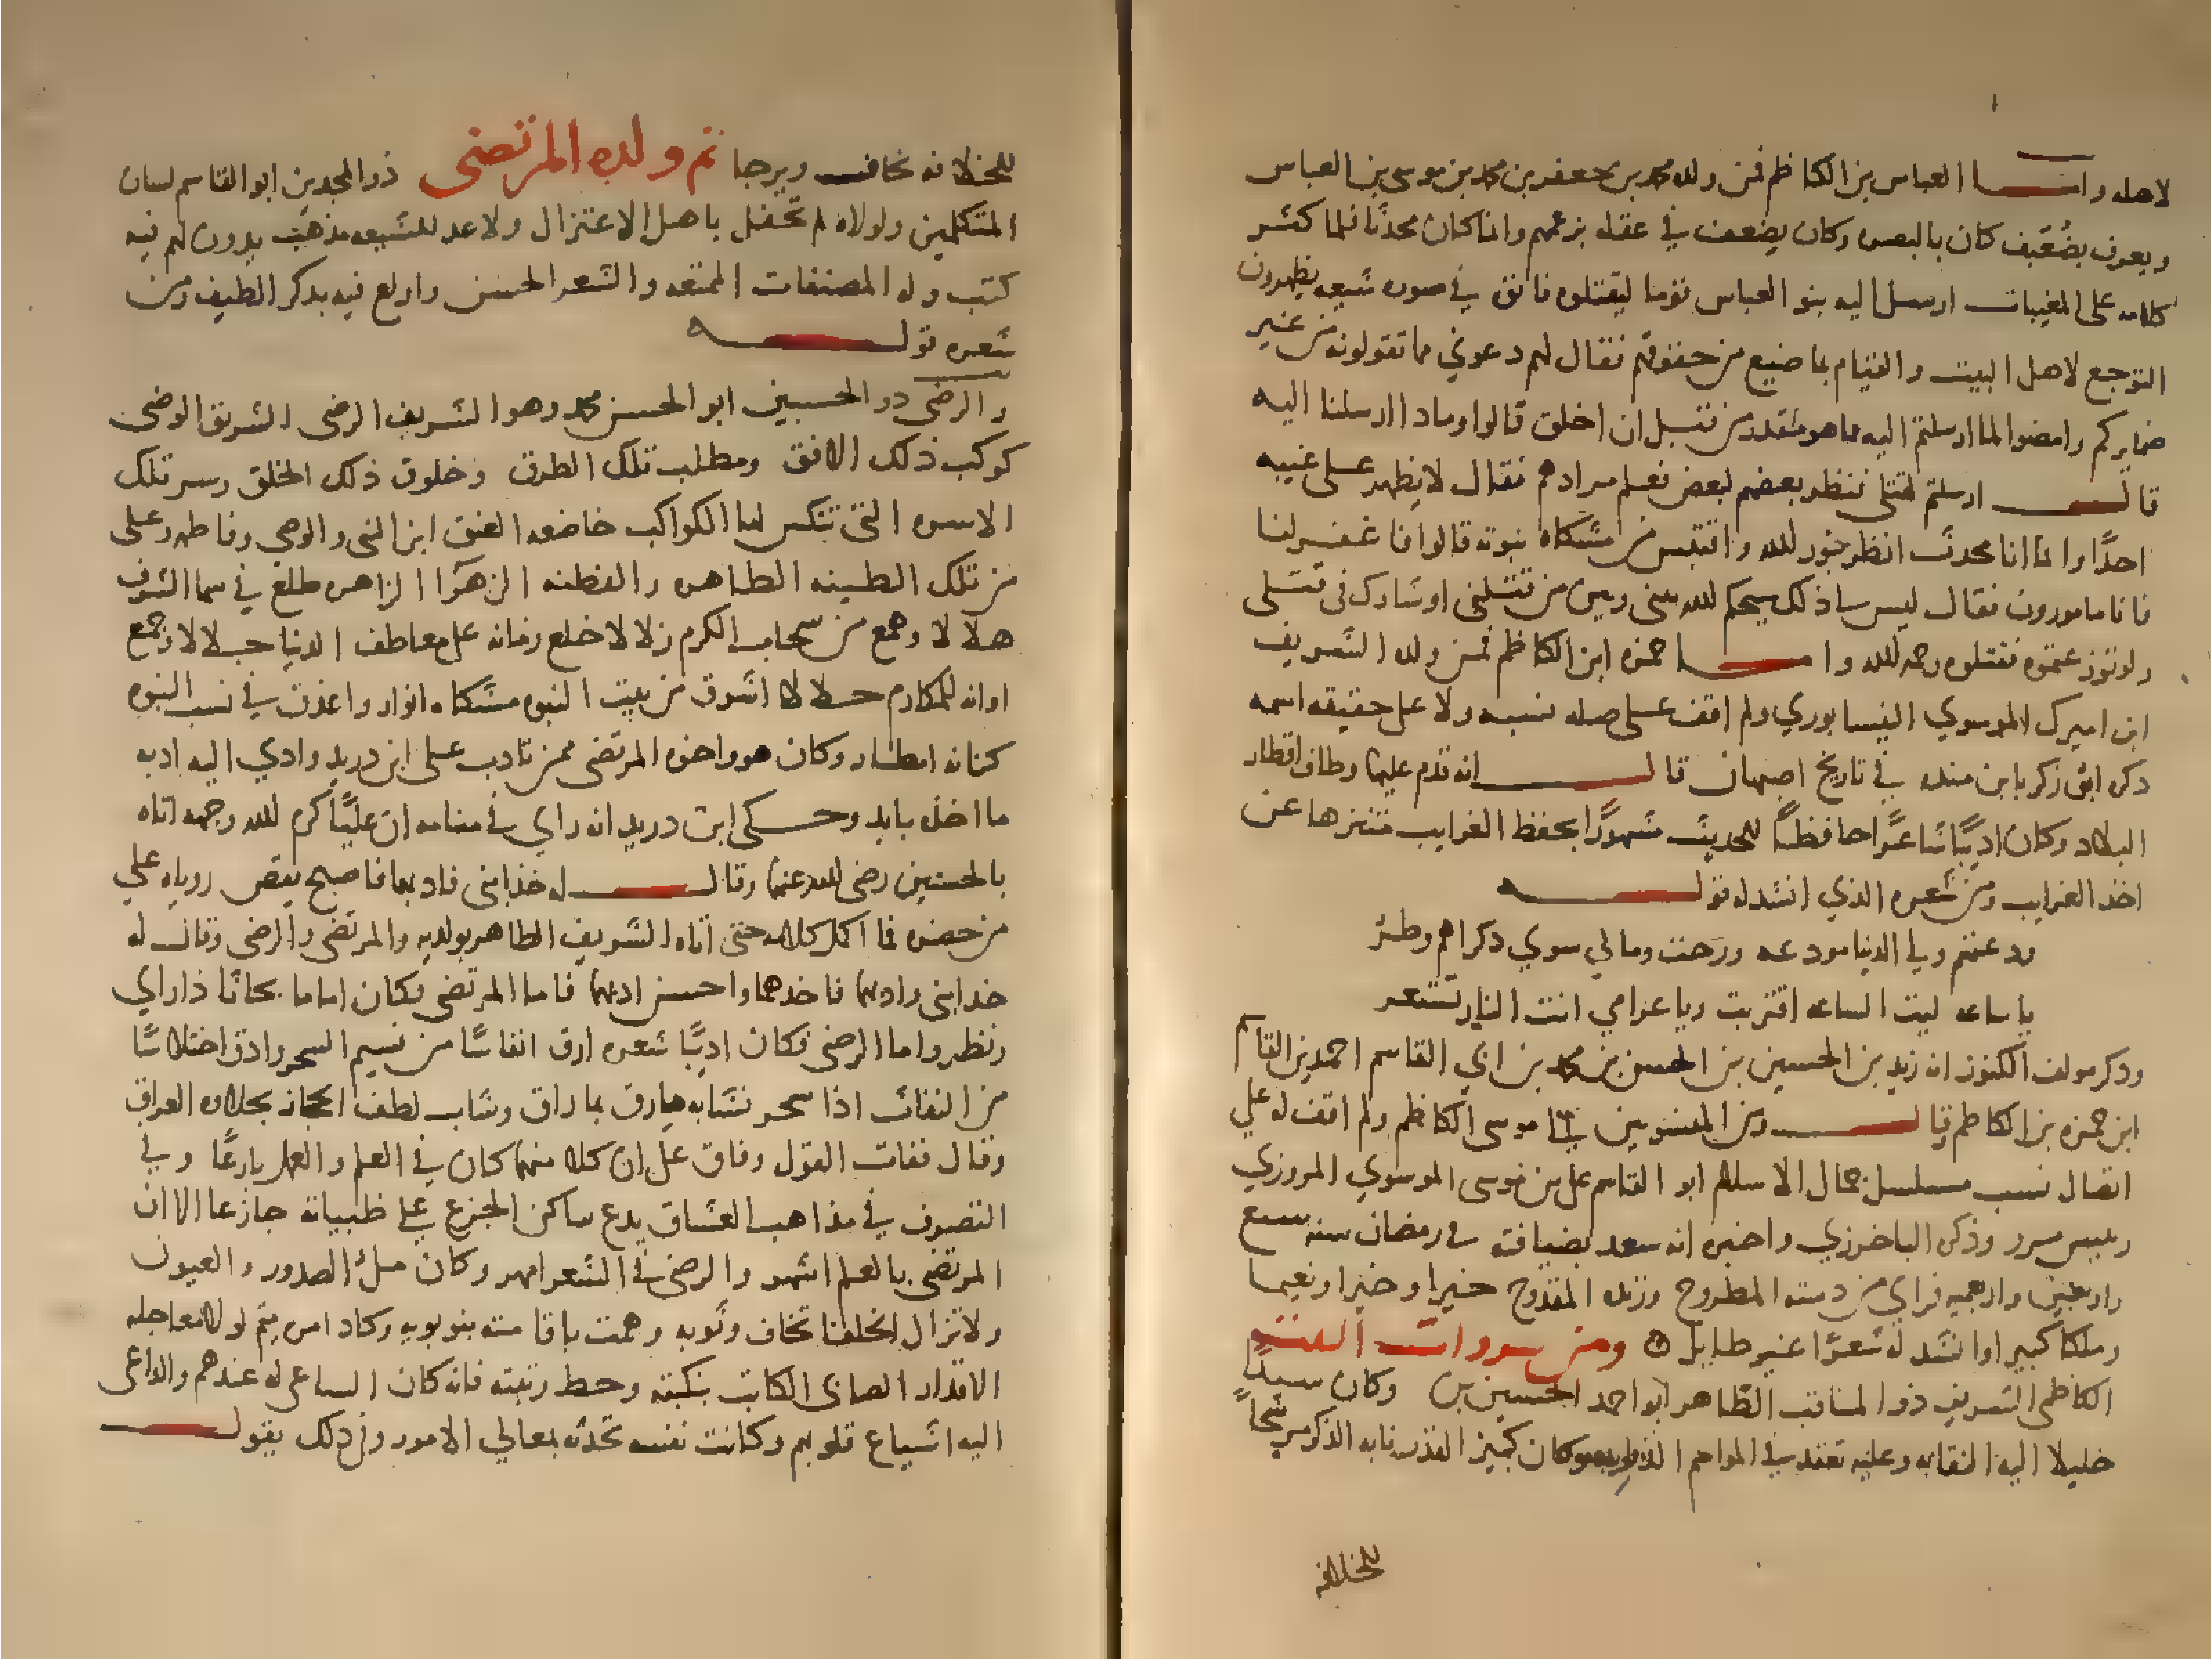 لاهله واما العباس بن الكاظم فمن ولده محمد بن جعفر بن محمد بن موسى بن العباس
ويعرف بضعيف كان بالبصره وكان يضعف في عقله بزعمهم وانما كان محدثا فلما كثر
كلامه على المغيبات ارسل اليه بنو العباس قوما ليقتلوه فاتوه في صوره شيعه يظهرون
التوجع لاهل البيت والقيام بما ضيع من حقوقهم فقال لهم دعوني مما تقولونه من غير
ضمايركم وامضوا لما ارسلتم اليه مما هو مقدر من قبل ان اخلق قالوا وماذا ارسلنا اليه
قال ارسلتم لقتلي فنظر بعضهم لبعض فعلم مرادهم فقال لا يظهر على غيبه
احدًا وانما انا محدث انظر بنور الله واقتبس من مشكاه نبوته قالوا فاغفر لنا
فانا مامورون فقال ليس ذلك سيحكم الله بيني وبين من قتلني او شارك في قتلي
فقتلوه رحمه الله واما حمزه ابن الكاظم فمن ولده الشريف
ابن اميرك الموسوي النيسابوري ولم اقف على صله نسبه ولا على حقيقه اسمه
ذكره ابو زكريا بن منده في تاريخ اصبهان قال انه قدم عليها وطاف اقطار
البلاد وكان اديبًا شاعرًا حافظًا للحديث مشهورًا بحفظ الغرايب متنزها عن
اخذ الغرايب ومن شعره الذي انشد له قوله
ودعتم ولي الدنيا مودعه ورحت ومالي سوي ذكراهم وطر
يا ساعه ليت الساعه اقتربت ويا غرامي انت النار تستعر
وذكر مولف الكنوز ان زيد بن الحسين بن الحسن بن محمد بن ابي القاسم احمد بن القاسم
ابن حمزه بن الكاظم قال ومن المنسوبين الي موسى الكاظم ولم اقف له علي
اتصال نسب مسلسل جمال الاسلام ابو القاسم علي بن موسى الموسوي المروزي
رييس مرو وذكره الباخرزي واخبر انه سعد بضيافته في رمضان سنه سبع
واربعين واربعميه فراي من دسته المطروح وزنده المقدوح خيرا وخيرا ونعيما
وملكا كبيرا وانشد له شعرًا غير طايل ومن سروات البيت
الكاظمي الشريف ذو المناقب الطاهر ابو احمد الحسين بن وكان سيدًا
خليلا اليه النقابه وعليه تعقد في المواسم وكان كبير القدر نابه الذكر مرشحًا
للخلافه
للخلافه تخافه ويرجا ثم ولده المرتضى ذو المجدين ابو القاسم لسان
المتكلمين ولولاه لم تحفل باهل الاعتزال ولا عد للشيعه مذهب يدون لهم فيه
كتب وله المصنفات الممتعه والشعر الحسن واولع فيه بذكر الطيف ومن
شعره قوله
والرضي ذو الحسبين ابو الحسن محمد وهو الشريف الرضي الشريق الوضي
كوكب ذلك الافق ومطلب تلك الطرق وخلوق ذلك الخلق وسر تلك
الاسره التي تنكس لها الكواكب خاضعه العنق ابن النبي والوصي وفاطمه وعلي
من تلك الطينه الطاهره والفطنه الزهرآ الزاهره طلع في سما الشرف
هلالا وهمع من سحاب الكرم زلالا خلع زمانه على معاطف الدنيا حللا وجمع
اوانه للمكارم حلالا اشرق من بيت النبوه مشكاه انوار واغدق في نسب النبوه
كنانه امطار وكان هو واخوه المرتضى ممن تادب على ابن دريد وادي اليه ادبه
ما اخذ باليد وحكى ابن دريد انه راي في منامه ان عليًا كرم الله وجهه اتاه
بالحسنين رضي الله عنهما وقال له خذ ابني فادبهما فاصبح يقص روياه علي
من حضره فما اكمل كلامه حتى اتاه الشريف الطاهر بولديه والمرتضى والرضي وقال له
خذ ابني وادبهما فاخذهما واحسن ادبهما فاما المرتضى فكان اماما بحاثا ذا راي
ونظر واما الرضي فكان اديبًا شعره ارق انفاسًا من نسيم السحر وادق اختلاسًا
من النفاث اذا سحر نشابه فارق بما راق وشاب لطف الحجاز بحلاوه العراق
وقال ففات القول وفاق على ان كلا منهما كان في العلم والعمل بارعًا وفي
التصرف في مذاهب العشاق يدع ساكن الجزع علي ظبياته جازعا الا ان
المرتضى بالعلم اشهر والرضي في الشعر امهر وكان ملأ الصدور والعيون
ولا تزال الخلفا تخاف وثوبه وهمت باقامته بنو بويه وكاد امره يتم لولا معاجله
الاقدار الصابي الكاتب بنكبته وحط رتبته فانه كان الساعي له عندهم والداعي
اليه اشياع قلوبهم وكانت نفسه تحدثه بمعالي الامور وفي ذلك يقول